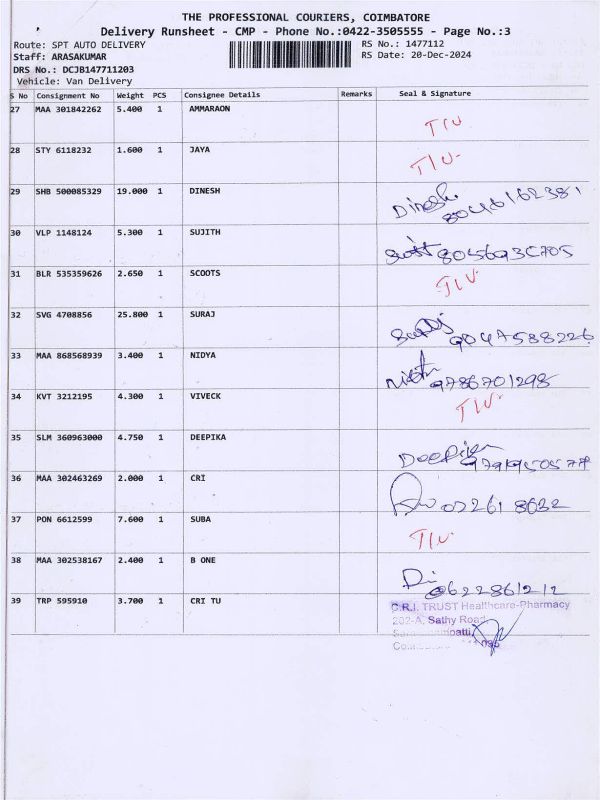 THE PROFESSIONAL COURIERS, COIMBATORE
Delivery Runsheet - CMP - Phone No.:0422-3505555 - Page No.:3
Route: SPT AUTO DELIVERY
RS No.: 1477112
Staff: ARASAKUMAR
RS Date: 20-Dec-2024
DRS No.: DCJB147711203
Vehicle: Van Delivery
S No Consignment No Weight PCS Consignee Details Remarks Seal & Signature
27 MAA 301842262 5.400 1 AMMARAON T/U
28 STY 6118232 1.600 1 JAYA T/U
29 SHB 500085329 19.000 1 DINESH Dinesh
30 VLP 1148124 5.300 1 SUJITH
31 BLR 535359626 2.650 1 SCOOTS T/U
32 SVG 4708856 25.800 1 SURAJ 9047588226
33 MAA 868568939 3.400 1 NIDYA 9786701298
34 KVT 3212195 4.300 1 VIVECK T/U
35 SLM 360963000 4.750 1 DEEPIKA Deepika
36 MAA 302463269 2.000 1 CRI
37 PON 6612599 7.600 1 SUBA T/U
38 MAA 302538167 2.400 1 B ONE
39 TRP 595910 3.700 1 CRI TU
C.R.I. TRUST Healthcare-Pharmacy
202-A, Sathy Road,